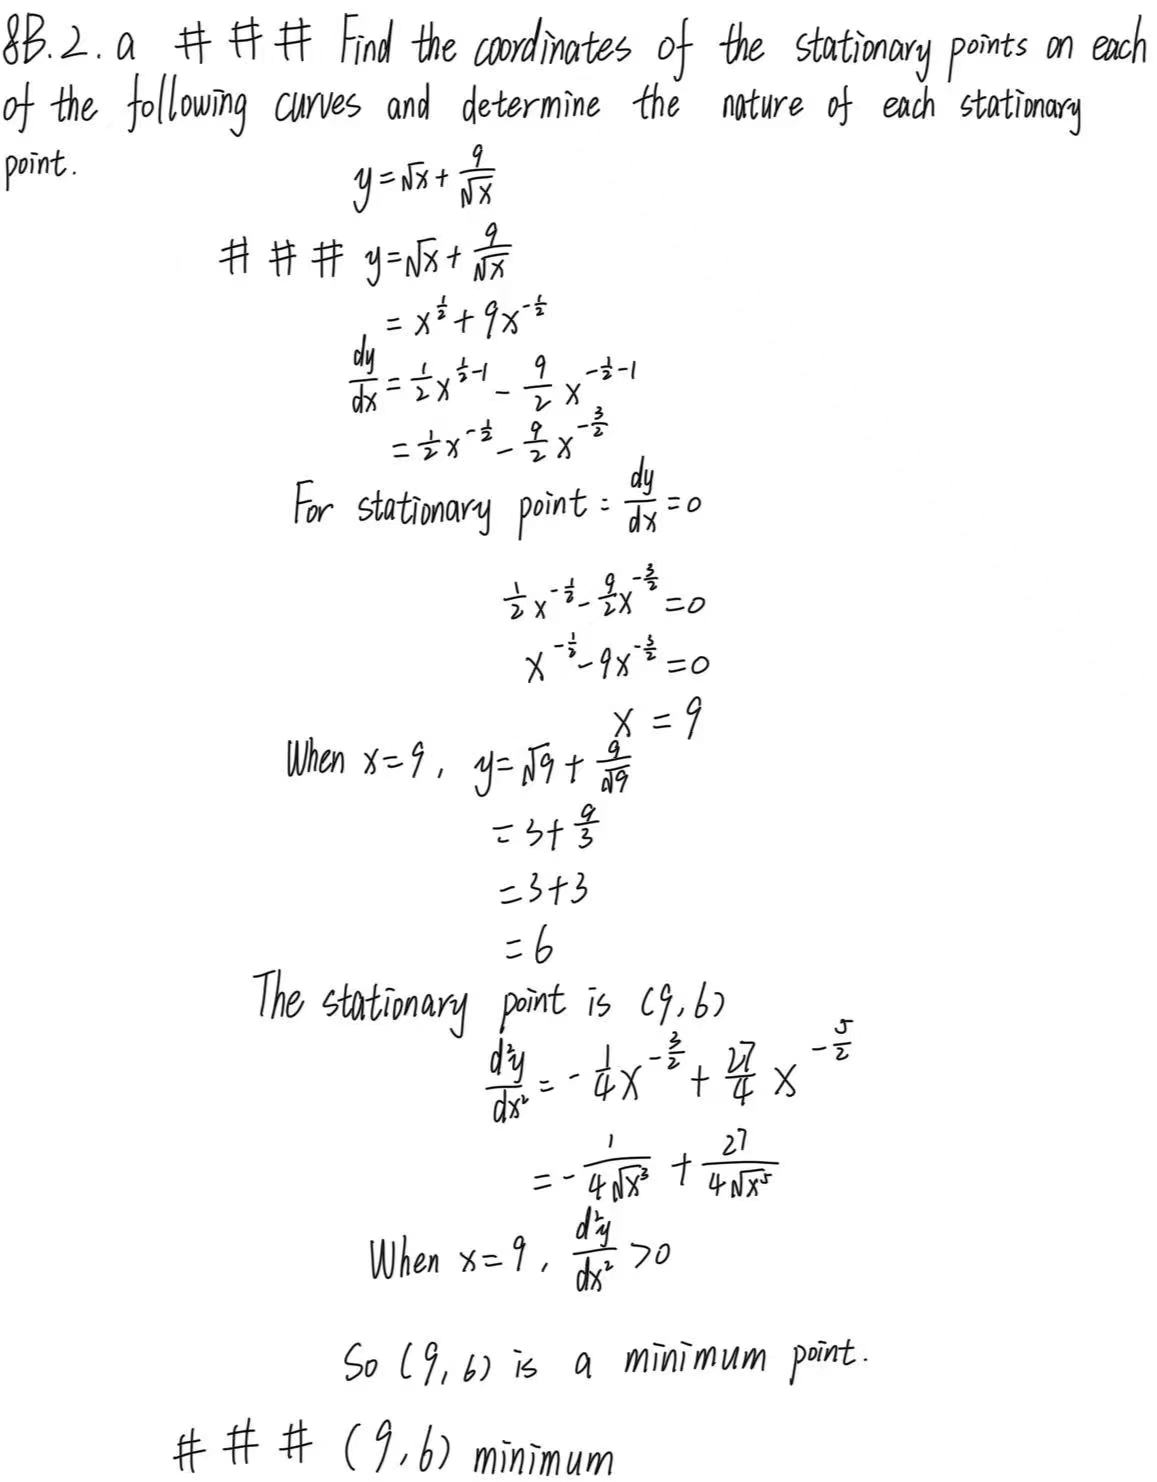 8B.2.a ### Find the coordinates of the stationary points on each
of the following curves and determine the nature of each stationary
point.
y=√x+9/√x
### y=√x+9/√x
=x^(1/2)+9x^(-1/2)
dy/dx=1/2x^(1/2-1)-9/2x^(-1/2-1)
=1/2x^(-1/2)-9/2x^(-3/2)
For stationary point: dy/dx=0
1/2x^(-1/2)-9/2x^(-3/2)=0
x^(-1/2)-9x^(-3/2)=0
x=9
When x=9, y=√9+9/√9
=3+9/3
=3+3
=6
The stationary point is (9,6)
d²y/dx²=-1/4x^(-3/2)+27/4x^(-5/2)
=-1/(4√x³)+27/(4√x⁵)
When x=9, d²y/dx²>0
So (9,6) is a minimum point.
### (9,6) minimum